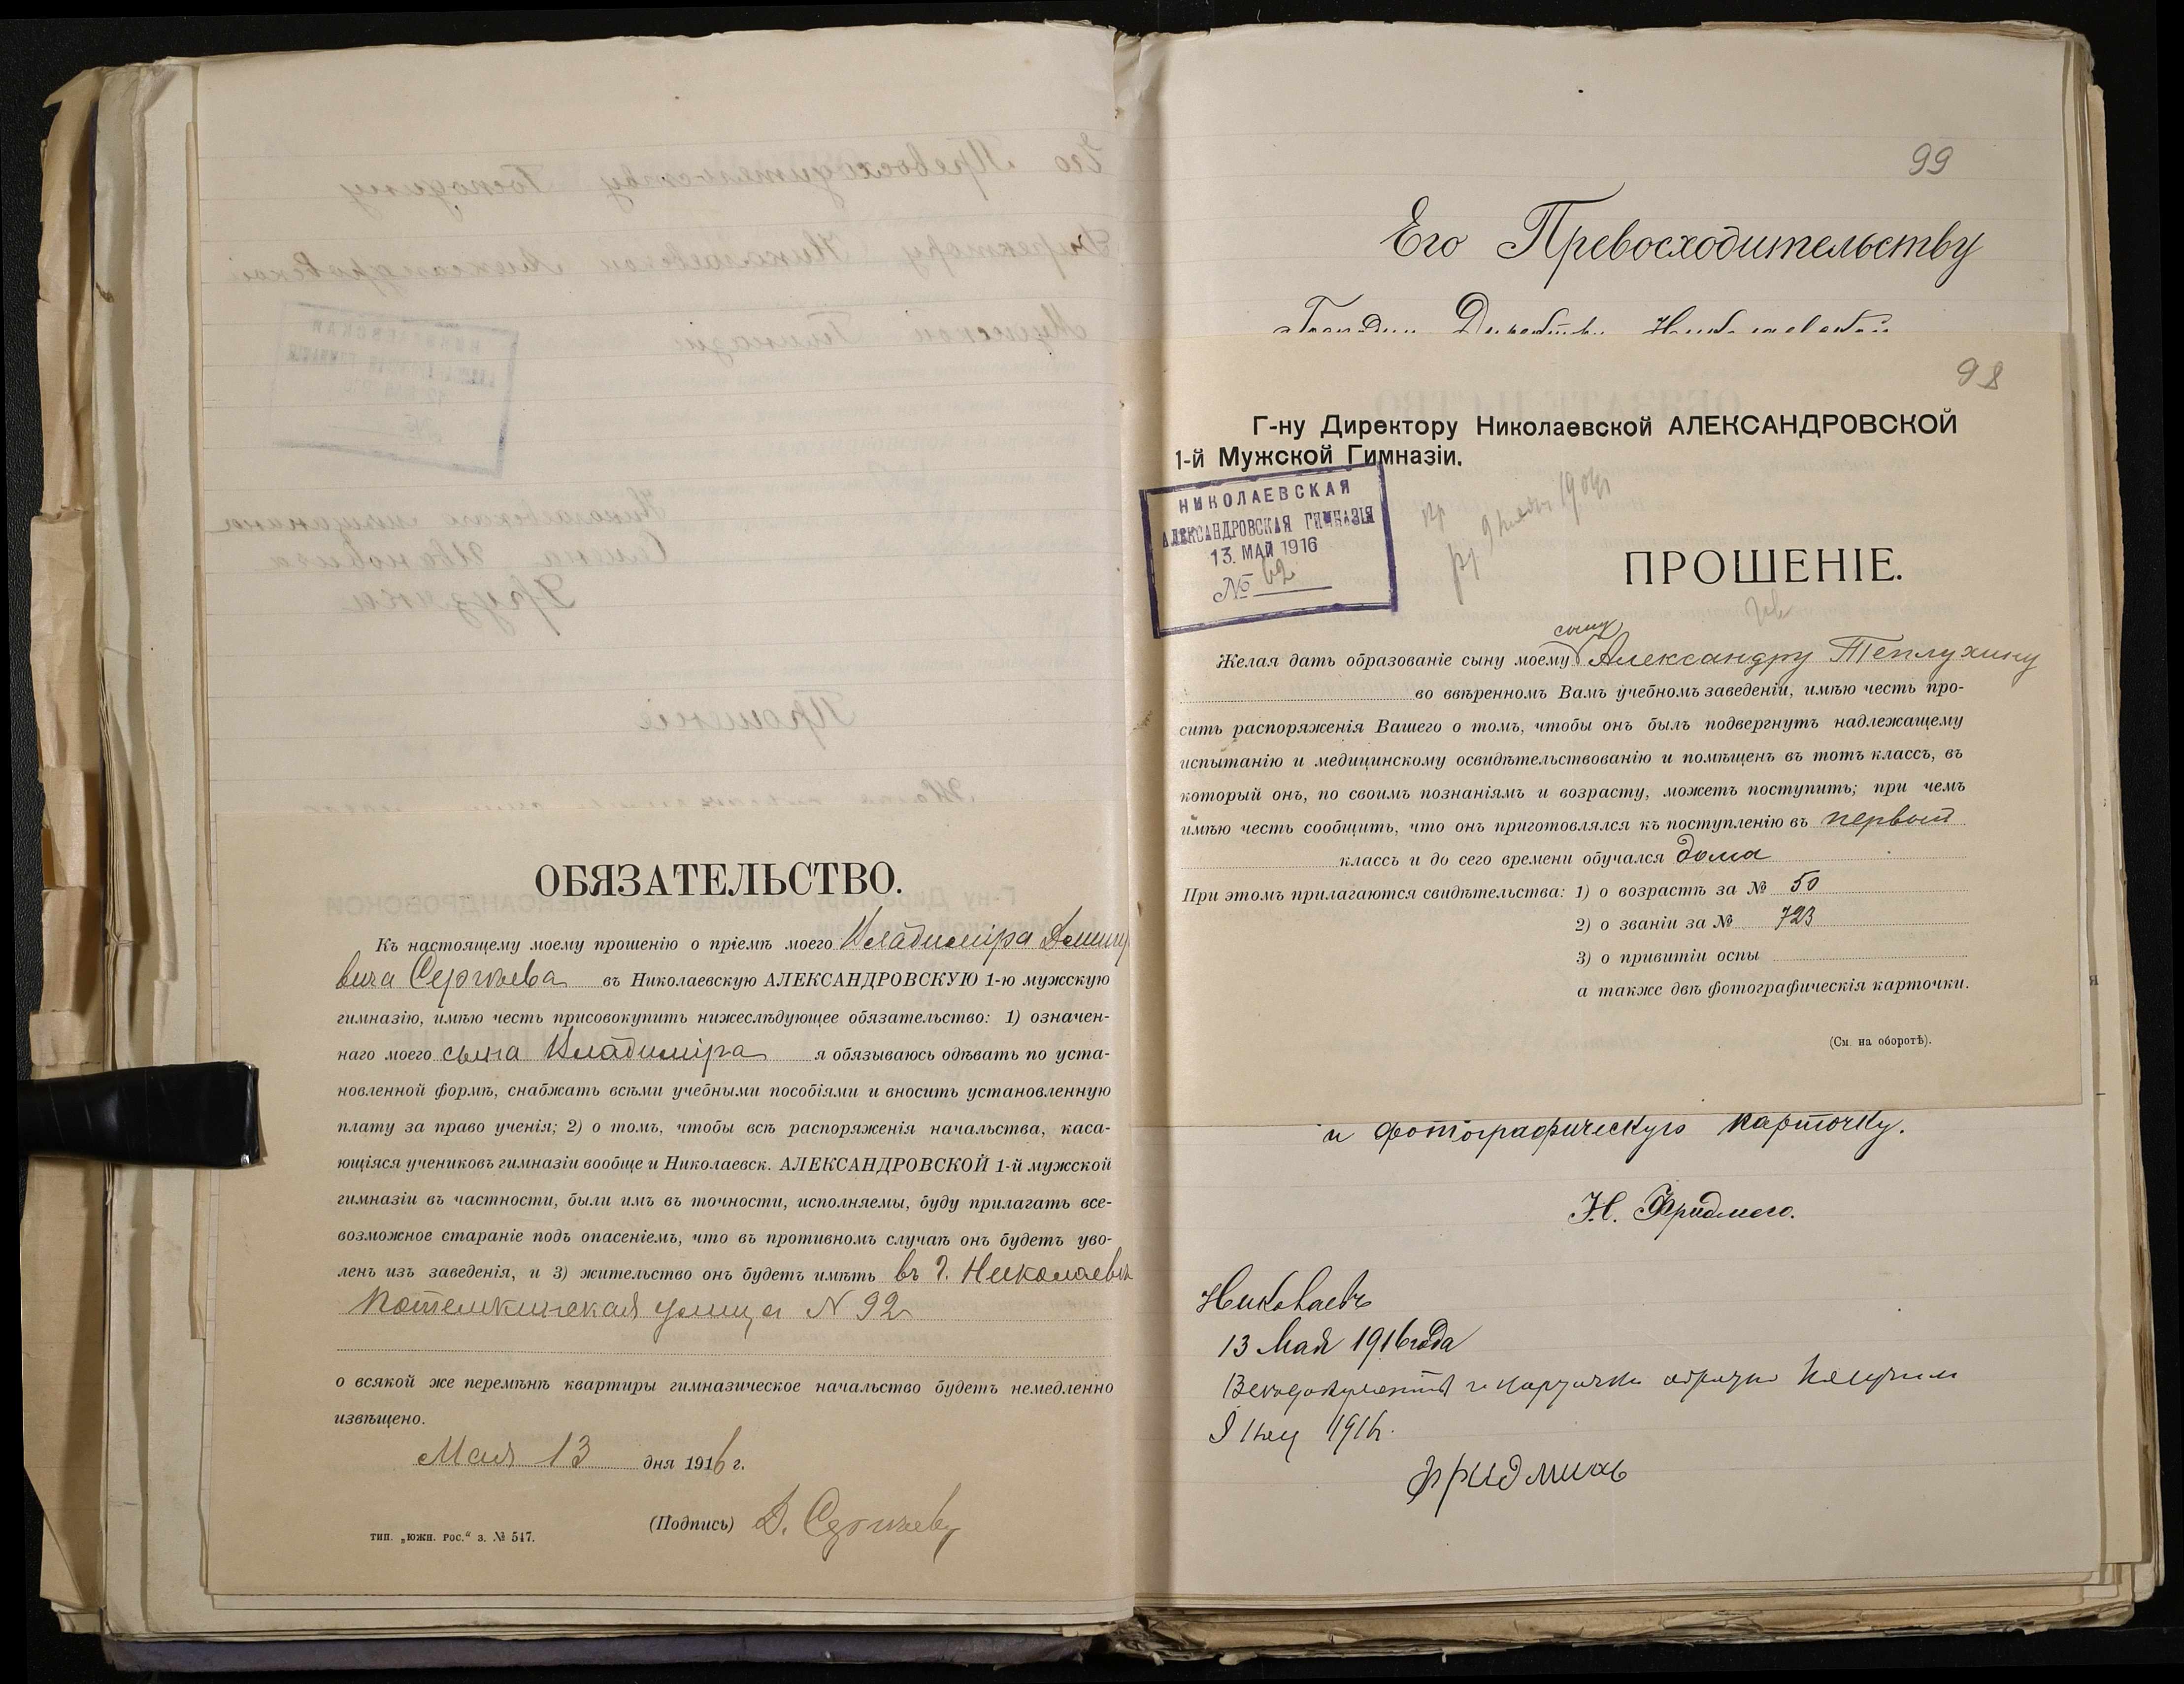 ОБЯЗАТЕЛЬСТВО.
Къ настоящему моему прошенію о пріемѣ моего Владиміра Демит
вича Сергѣева въ Николаевскую АЛЕКСАНДРОВСКУЮ 1-ю мужскую
гимназію, имѣю честь присовокупить нижеслѣдующее обязательство: 1) означен-
наго моего сына Владиміра я обязываюсь одѣвать по уста-
новленной формѣ, снабжать всѣми учебными пособіями и вносить установленную
плату за право ученія; 2) о томъ, чтобы всѣ распоряженія начальства, каса-
ющіяся учениковъ гимназіи вообще и Николаевск. АЛЕКСАНДРОВСКОЙ 1-й мужской
гимназіи въ частности, были имъ въ точности, исполняемы, буду прилагать все-
возможное стараніе подъ опасеніемъ, что въ противномъ случаѣ онъ будетъ уво-
ленъ изъ заведенія, и 3) жительство онъ будетъ имѣть въ г. Николаевѣ
Потемкинская улица N 92
о всякой же перемѣнѣ квартиры гимназическое начальство будетъ немедленно
извѣщено.
Мая 13 дня 1916 г.
(Подпись) Д. Сергѣевъ
тип. „южн. рос.“ з. № 547.
99
Его Превосходительству
Директору Николаевской
98
Г-ну Директору Николаевской АЛЕКСАНДРОВСКОЙ
1-й Мужской Гимназіи.
НИКОЛАЕВСКАЯ
АЛЕКСАНДРОВСКАЯ ГИМНАЗІЯ
13. МАЙ 1916
№ 62
ПРОШЕНІЕ.
сыну
Желая дать образованіе сыну моему Александру Теплухину
во ввѣренномъ Вамъ учебномъ заведеніи, имѣю честь про-
сить распоряженія Вашего о томъ, чтобы онъ былъ подвергнутъ надлежащему
испытанію и медицинскому освидѣтельствованію и помѣщенъ въ тотъ классъ, въ
который онъ, по своимъ познаніямъ и возрасту, можетъ поступить; при чемъ
имѣю честь сообщить, что онъ приготовлялся къ поступленію въ первый
классъ и до сего времени обучался дома
При этомъ прилагаются свидѣтельства: 1) о возрастѣ за № 50
2) о званіи за № 723
3) о привитіи оспы
а также двѣ фотографическія карточки.
(См. на оборотѣ).
и фотографическую карточку.
Николаевъ
13 Мая 1916 года
1916.